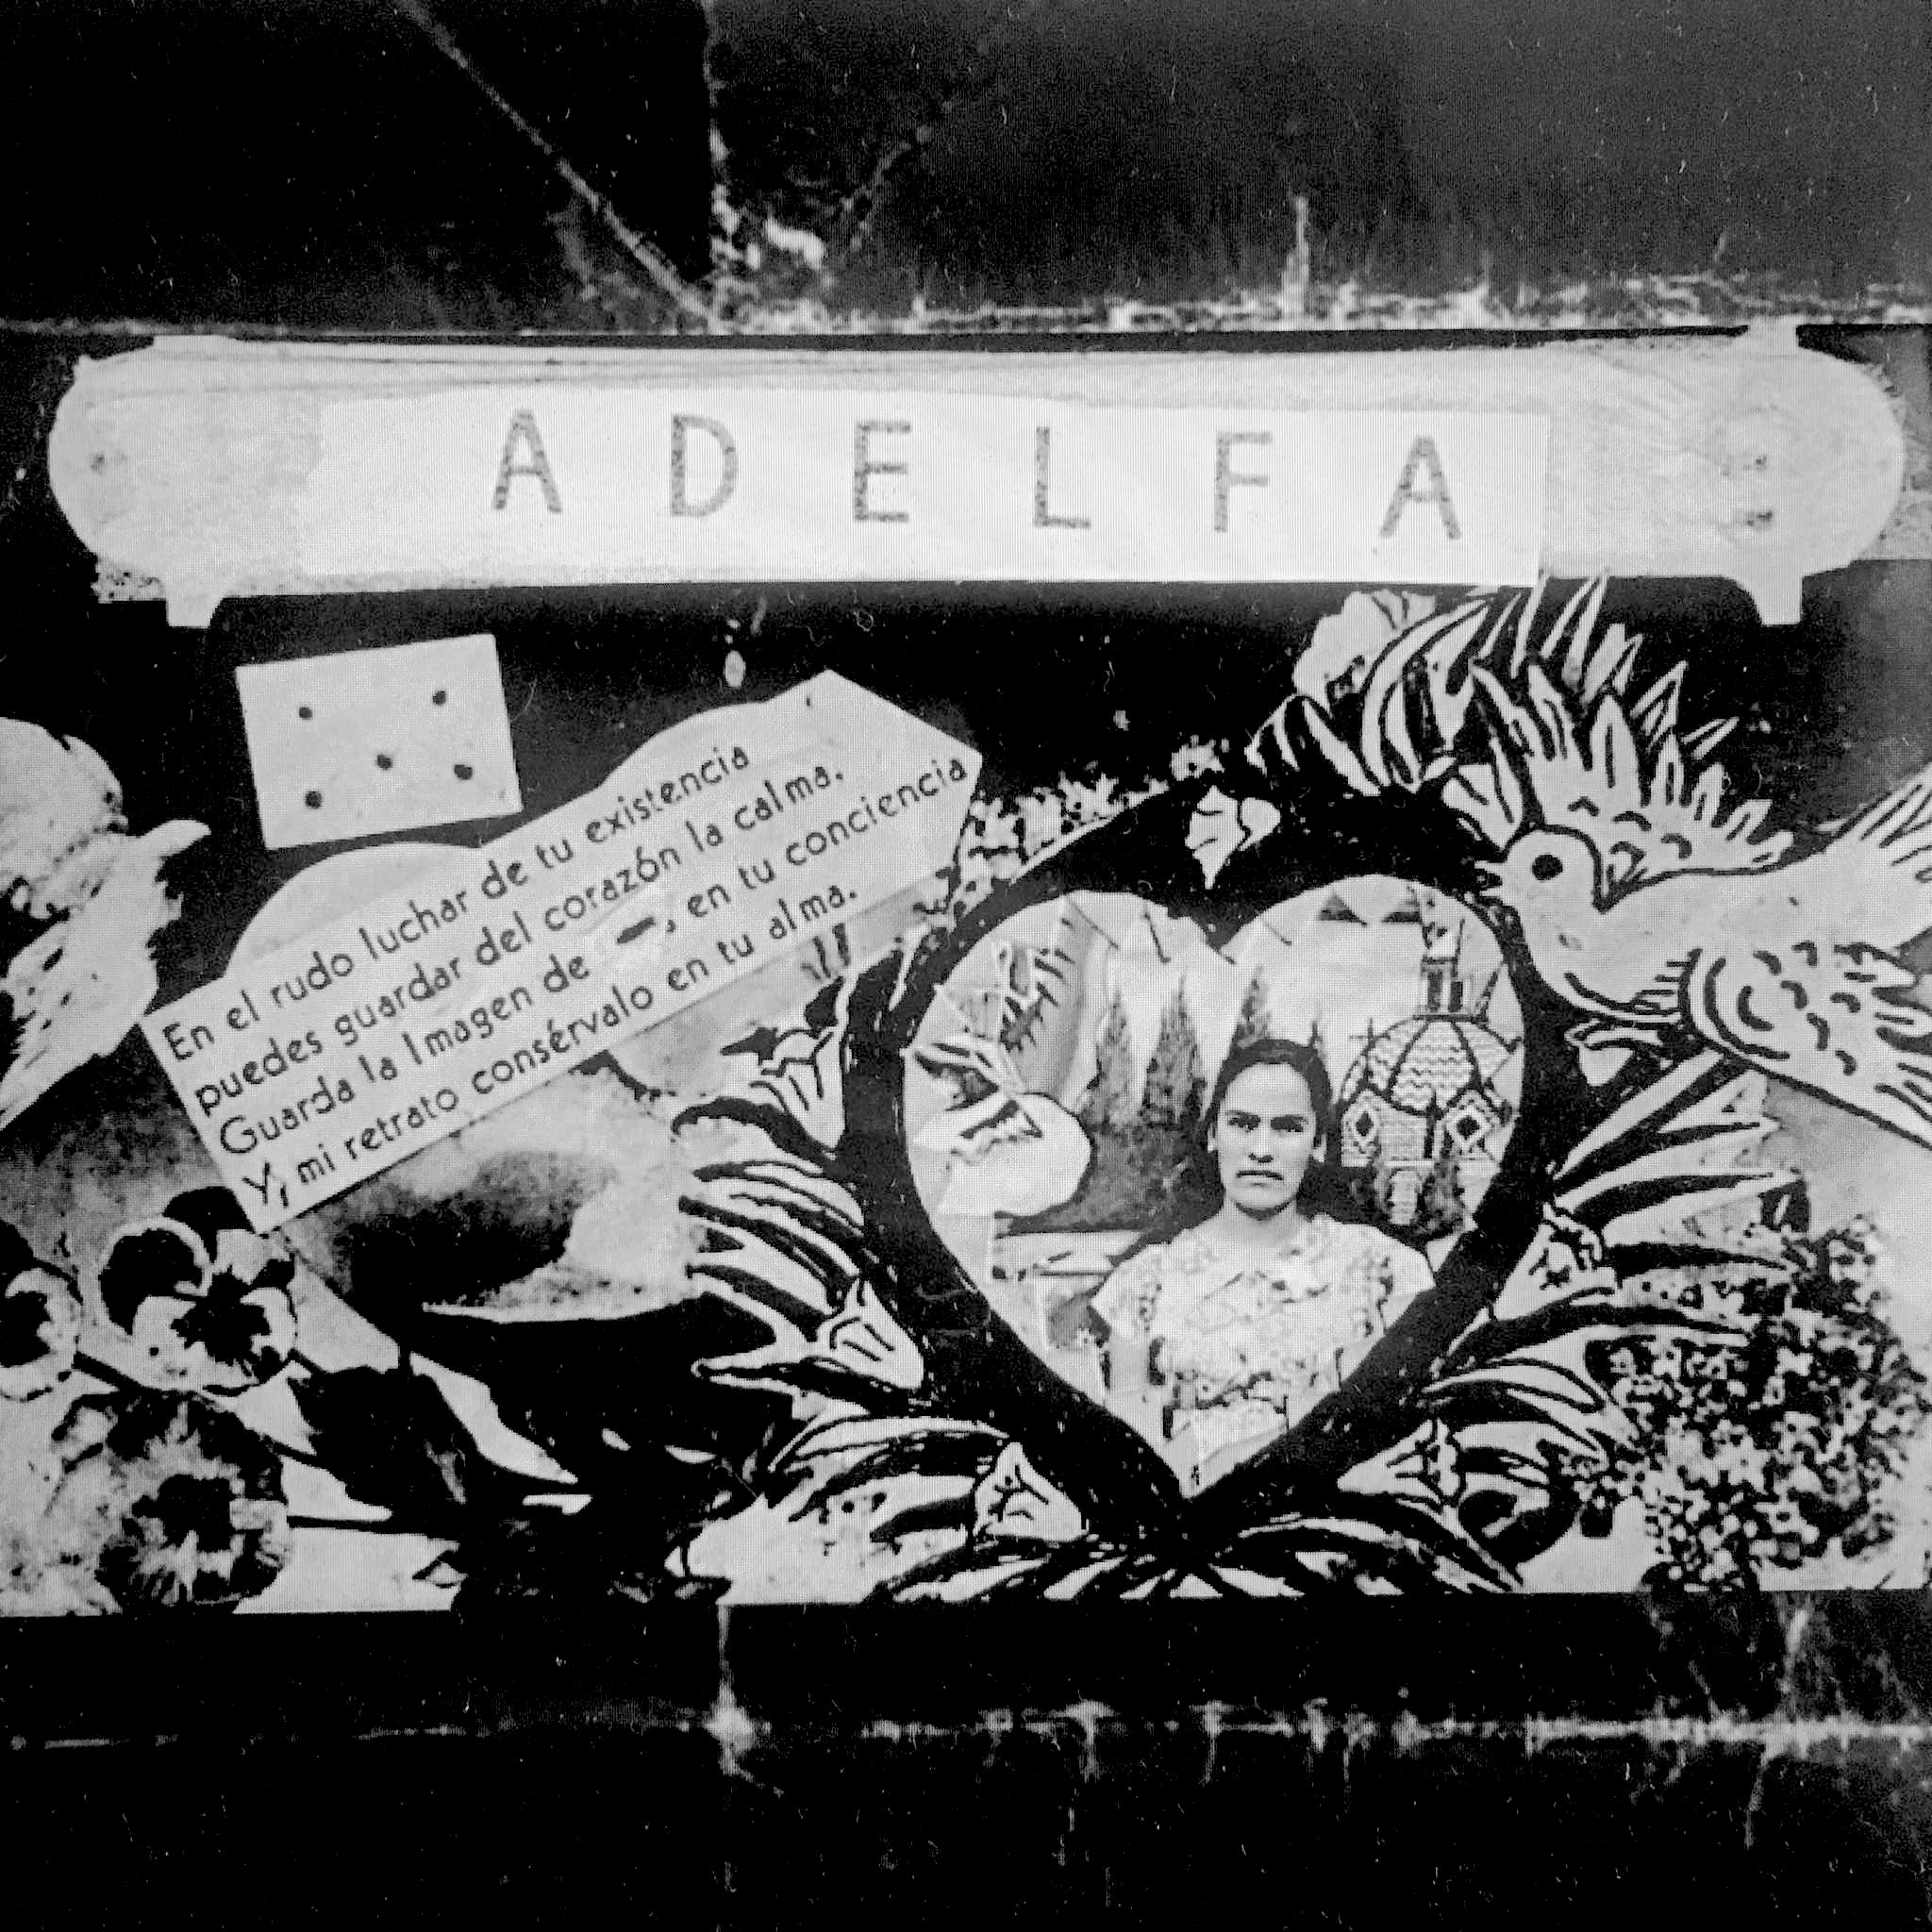 ADELFA
En el rudo luchar de tu existencia
puedes guardar del corazón la calma.
Guarda la Imagen de —, en tu conciencia
Y, mi retrato consérvalo en tu alma.